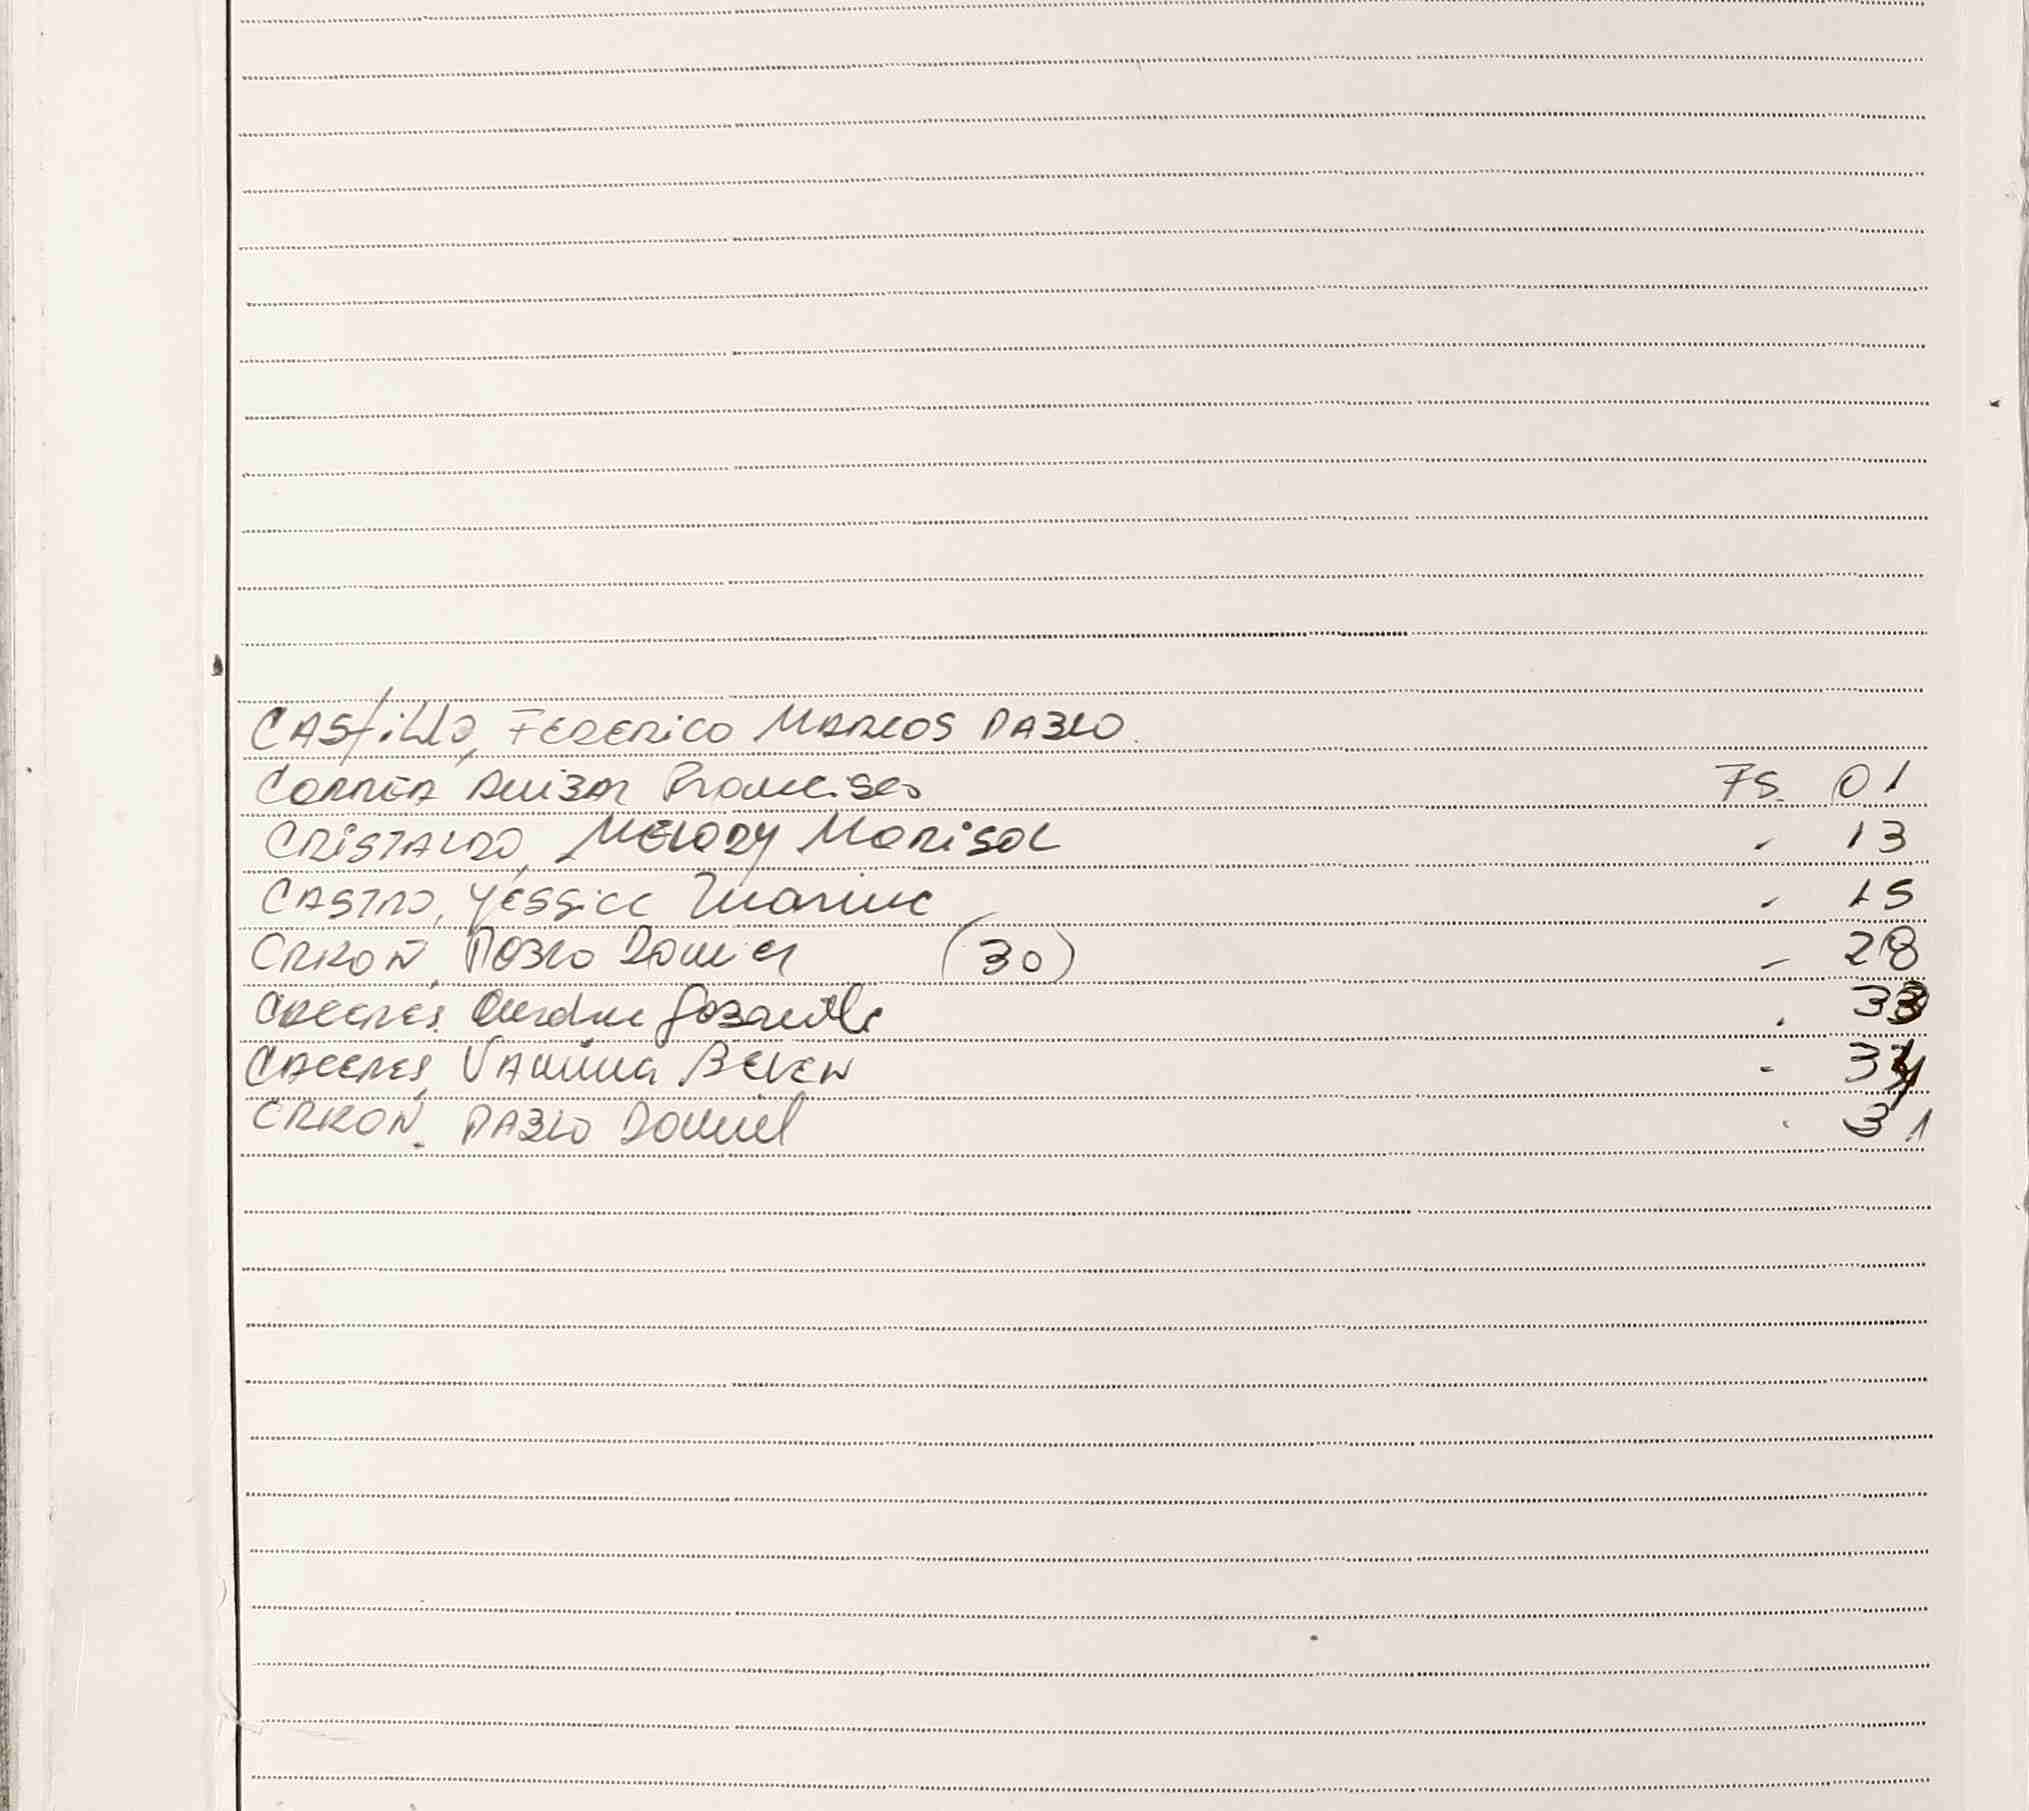 CASTILLO, FEDERICO MARCOS PABLO.
CORREA Francisco FS. 01
CRISTALDO, MELODY MARISOL " 13
CASTRO, YESSICA Marina " 15
PABLO Daniel (30) " 28
CACERES, " 33
CACERES, VANINA BELEN " 34
PABLO Daniel " 31